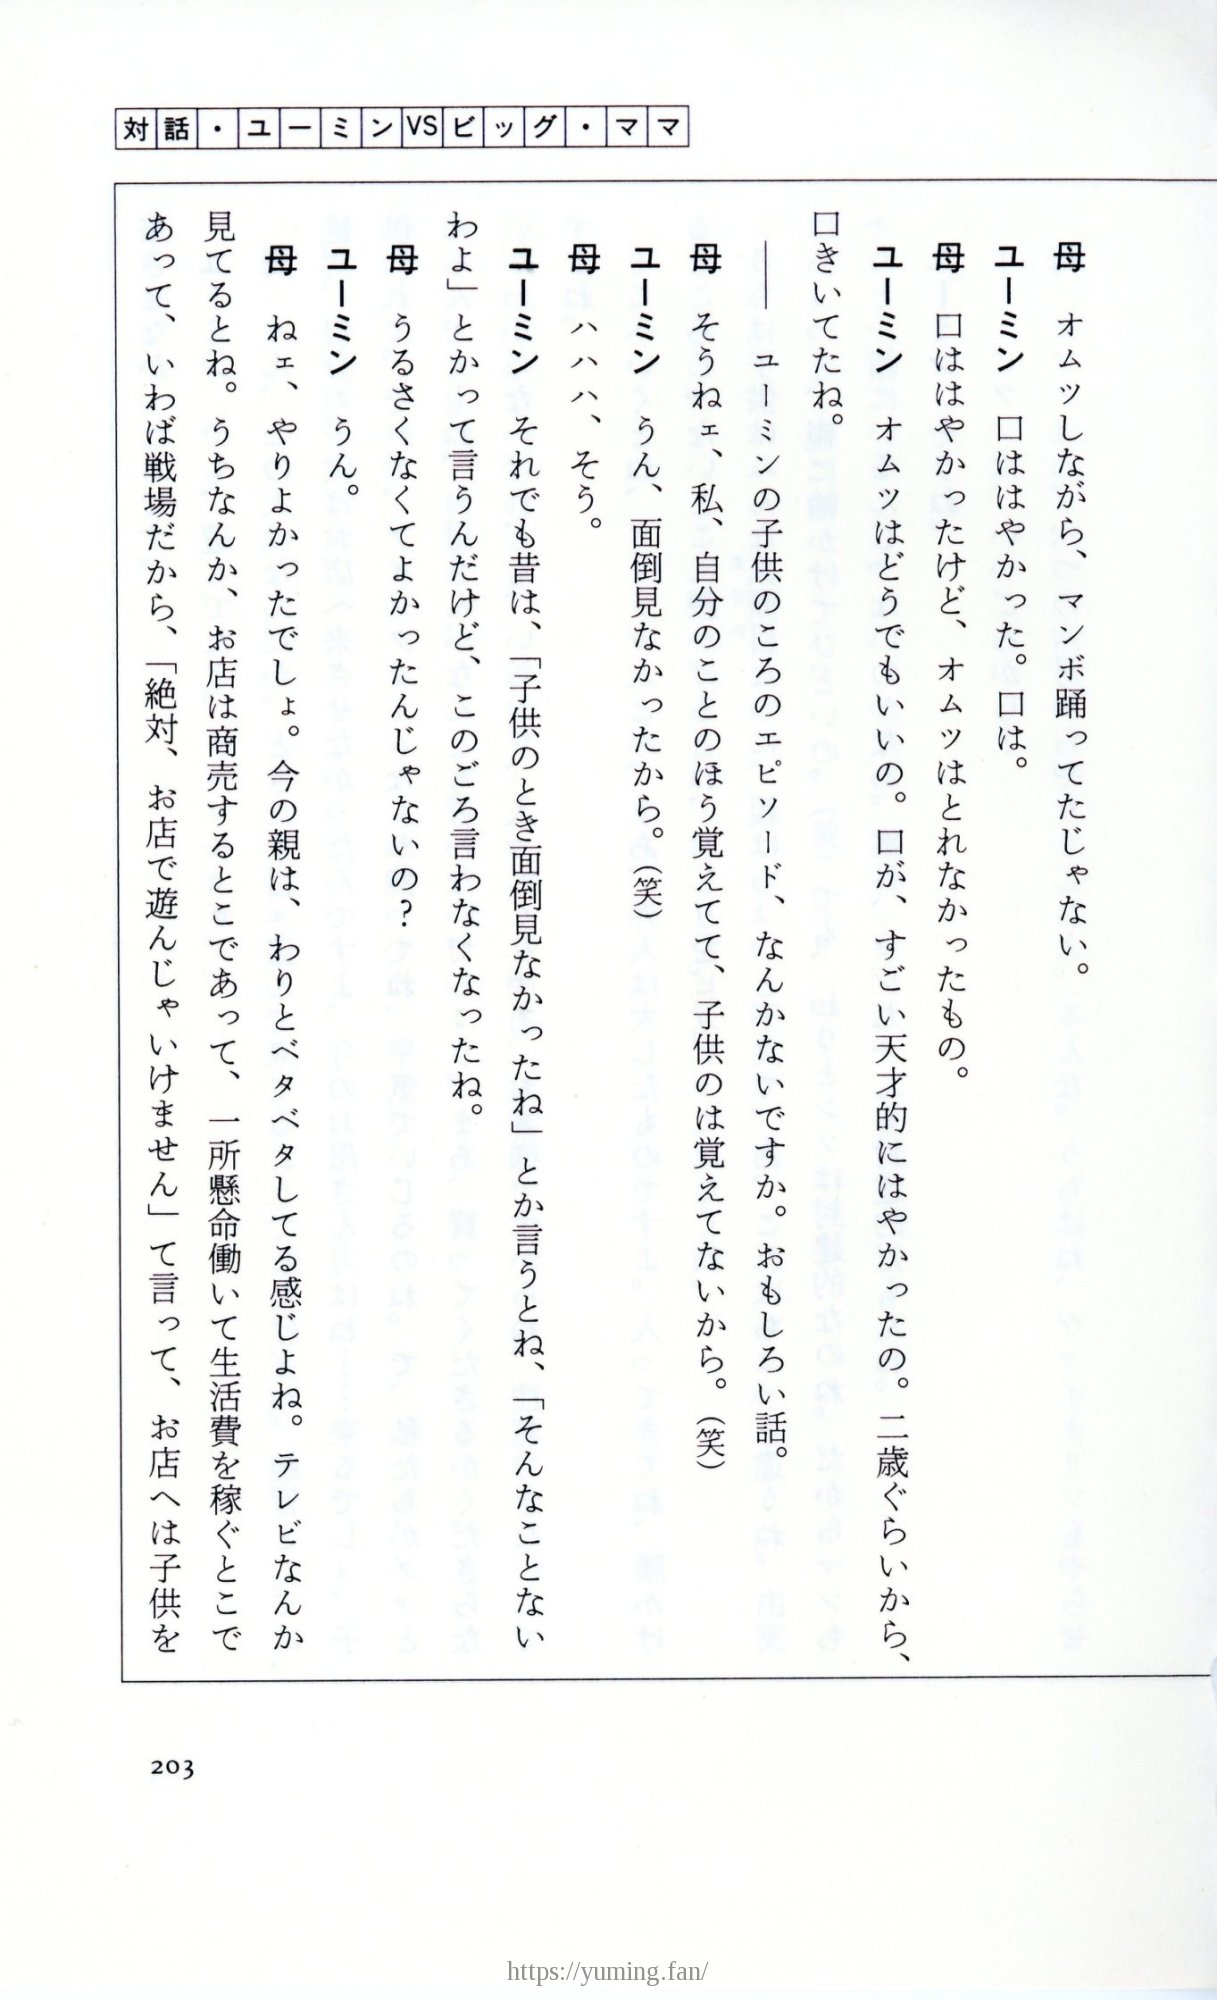 対話・ユーミンVSビッグ・ママ
母　オムツしながら、マンボ踊ってたじゃない。
ユーミン　口ははやかった。口は。
母　口ははやかったけど、オムツはとれなかったもの。
ユーミン　オムツはどうでもいいの。口が、すごい天才的にはやかったの。二歳ぐらいから、
口きいてたね。
――　ユーミンの子供のころのエピソード、なんかないですか。おもしろい話。
母　そうねェ、私、自分のことのほう覚えてて、子供のは覚えてないから。（笑）
ユーミン　うん、面倒見なかったから。（笑）
母　ハハハ、そう。
ユーミン　それでも昔は、「子供のとき面倒見なかったね」とか言うとね、「そんなことない
わよ」とかって言うんだけど、このごろ言わなくなったね。
母　うるさくなくてよかったんじゃないの？
ユーミン　うん。
母　ねェ、やりよかったでしょ。今の親は、わりとベタベタしてる感じよね。テレビなんか
見てるとね。うちなんか、お店は商売するとこであって、一所懸命働いて生活費を稼ぐとこで
あって、いわば戦場だから、「絶対、お店で遊んじゃいけません」て言って、お店へは子供を
203
https://yuming.fan/